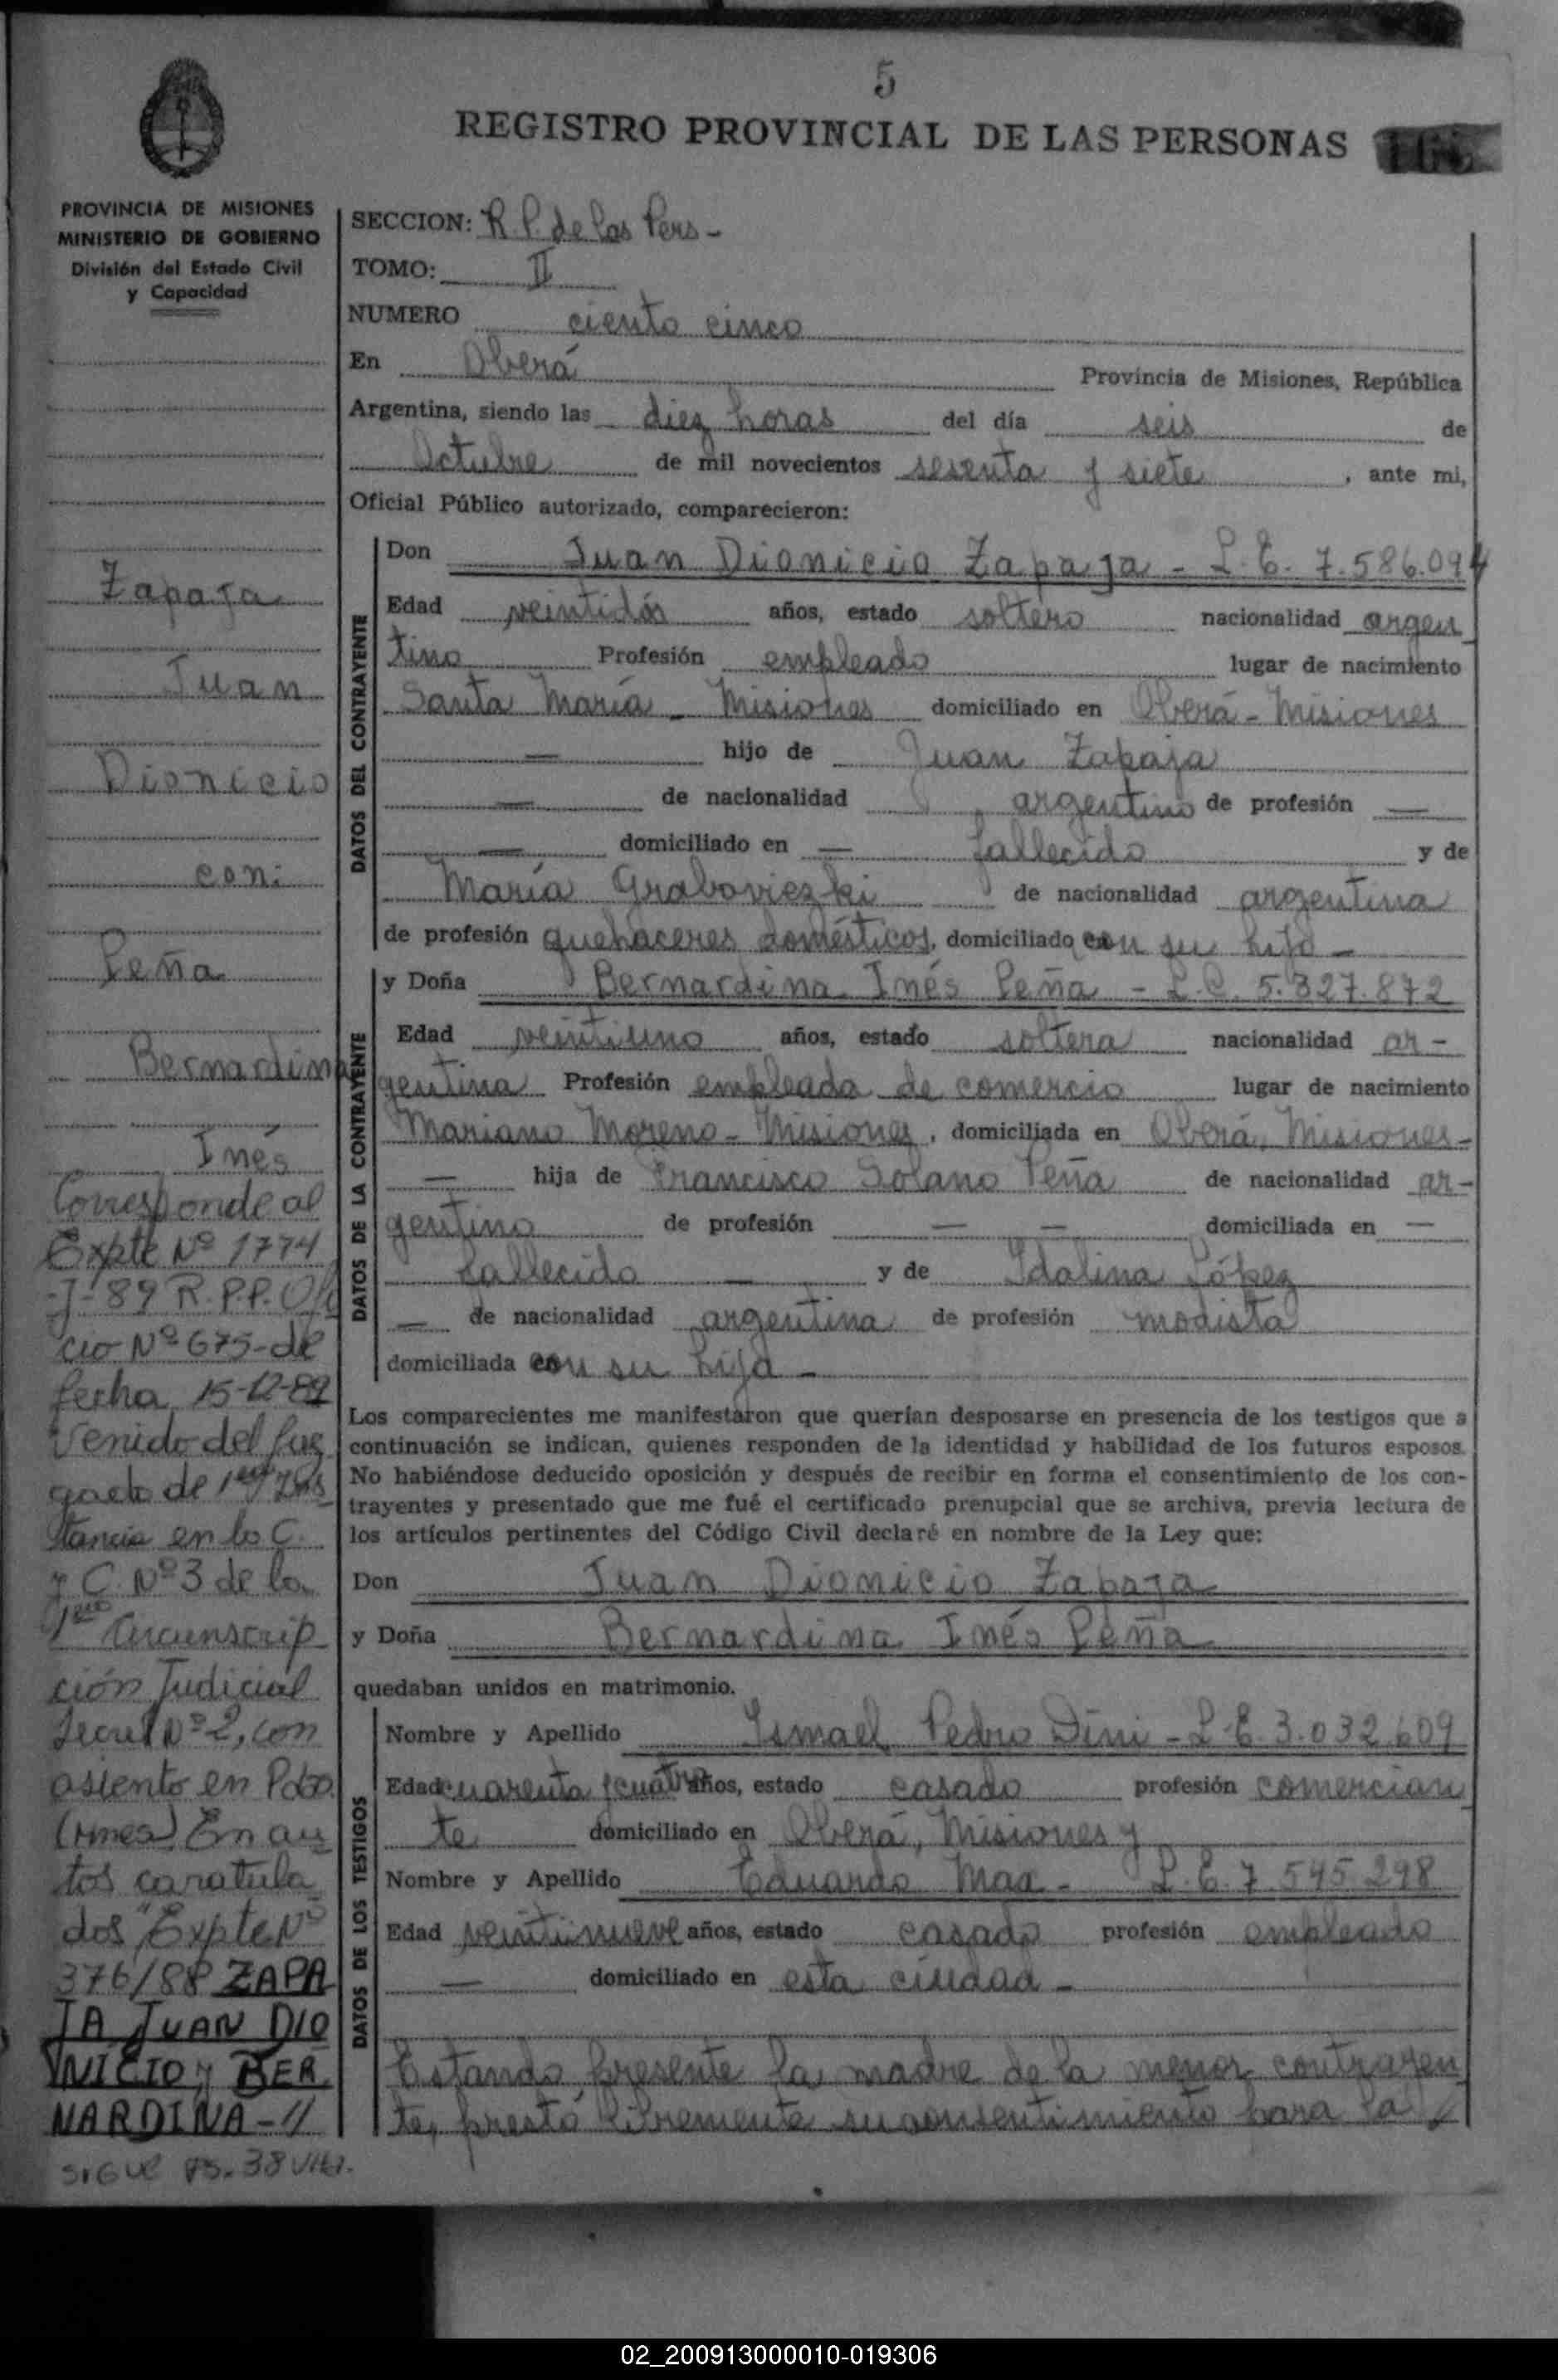 5
REGISTRO PROVINCIAL DE LAS PERSONAS
PROVINCIA DE MISIONES
MINISTERIO DE GOBIERNO
División del Estado Civil
y Capacidad
Zapaja
Juan
Dionicio
con:
Peña
Bernardina
Inés
Corresponde al
Expte Nº 1774
-J-89 R.P.P. Ofi
cio Nº 675-de
fecha 15-12-89
Venido del Juz
gado de 1era Ins
tancia en lo C.
y C. Nº 3 de la
1era Circunscrip
ción Judicial
Secret Nº 2, con
asiento en Pdas.
(Mnes) En au
tos caratula
dos "Expte Nº
376/88 ZAPA
JA JUAN DIO
NICIO y BER
NARDINA-//
SIGUE FS. 38 Vta.
SECCION: R.P. de las Pers-
TOMO: II
NUMERO ciento cinco
En Oberá Provincia de Misiones, República
Argentina, siendo las diez horas del día seis de
Octubre de mil novecientos sesenta y siete, ante mi,
Oficial Público autorizado, comparecieron:
DATOS DEL CONTRAYENTE
Don Juan Dionicio Zapaja - L.E. 7.586.094
Edad veintidós años, estado soltero nacionalidad argen
tino Profesión empleado lugar de nacimiento
Santa María - Misiones domiciliado en Oberá - Misiones
— hijo de Juan Zapaja
— de nacionalidad argentino de profesión —
— domiciliado en — fallecido y de
María Grabovieszki de nacionalidad argentina
de profesión quehaceres domésticos, domiciliado con su hijo -
DATOS DE LA CONTRAYENTE
y Doña Bernardina Inés Peña - L.C. 5.327.872
Edad veintiuno años, estado soltera nacionalidad ar-
gentina Profesión empleada de comercio lugar de nacimiento
Mariano Moreno - Misiones, domiciliada en Oberá, Misiones-
— hija de Francisco Solano Peña de nacionalidad ar-
gentino de profesión — — domiciliada en —
fallecido — y de Idalina López
— de nacionalidad argentina de profesión modista
domiciliada con su hija -
Los comparecientes me manifestaron que querían desposarse en presencia de los testigos que a
continuación se indican, quienes responden de la identidad y habilidad de los futuros esposos.
No habiéndose deducido oposición y después de recibir en forma el consentimiento de los con-
trayentes y presentado que me fué el certificado prenupcial que se archiva, previa lectura de
los artículos pertinentes del Código Civil declaré en nombre de la Ley que:
Don Juan Dionicio Zapaja
y Doña Bernardina Inés Peña
quedaban unidos en matrimonio.
DATOS DE LOS TESTIGOS
Nombre y Apellido Ismael Pedro Dini - L.E. 3.032.609
Edad cuarenta y cuatro años, estado casado profesión comercian
te domiciliado en Oberá, Misiones y
Nombre y Apellido Eduardo Max - L.E. 7.545.298
Edad veintinueve años, estado casado profesión empleado
— domiciliado en esta ciudad -
Estando presente la madre de la menor contrayen
te, prestó libremente su consentimiento para la
02_200913000010-019306